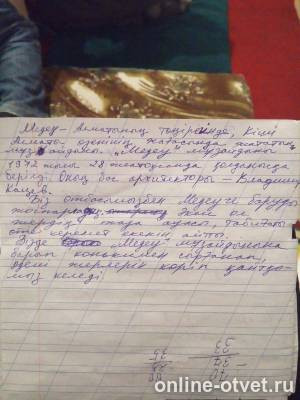 Медеу - Алматының төңірегінде, Кіші
Алматы өзенінің жағасында жататын
мұз айдыны. "Медеу" мұзайдыны
1972 жылы 28 желтоқсанда қолданысқа
берілді. Оның бас архитекторы - Владимир
Кацев.
Біз отбасымызбен Медеуге баруды
Және ол
жердің ауасы, табиғаты
өте керемет екенін айтты.
Бізде Медеу мұзайдынына
барып конькимен сырғанап,
әдемі жерлерін көріп қайтқы-
мыз келеді.
online-otvet.ru